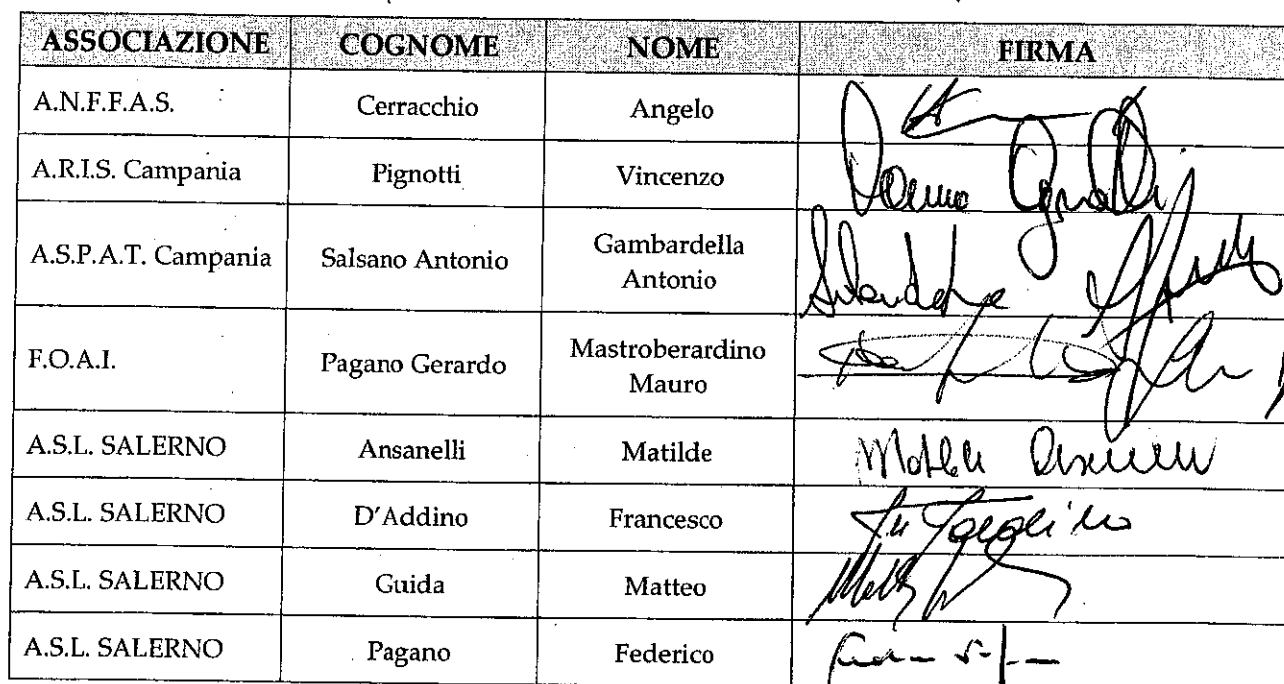 ASSOCIAZIONE COGNOME NOME FIRMA
A.N.F.F.A.S. Cerracchio Angelo
A.R.I.S. Campania Pignotti Vincenzo
A.S.P.A.T. Campania Salsano Antonio Gambardella
Antonio
F.O.A.I. Pagano Gerardo Mastroberardino
Mauro
A.S.L. SALERNO Ansanelli Matilde
A.S.L. SALERNO D'Addino Francesco
A.S.L. SALERNO Guida Matteo
A.S.L. SALERNO Pagano Federico